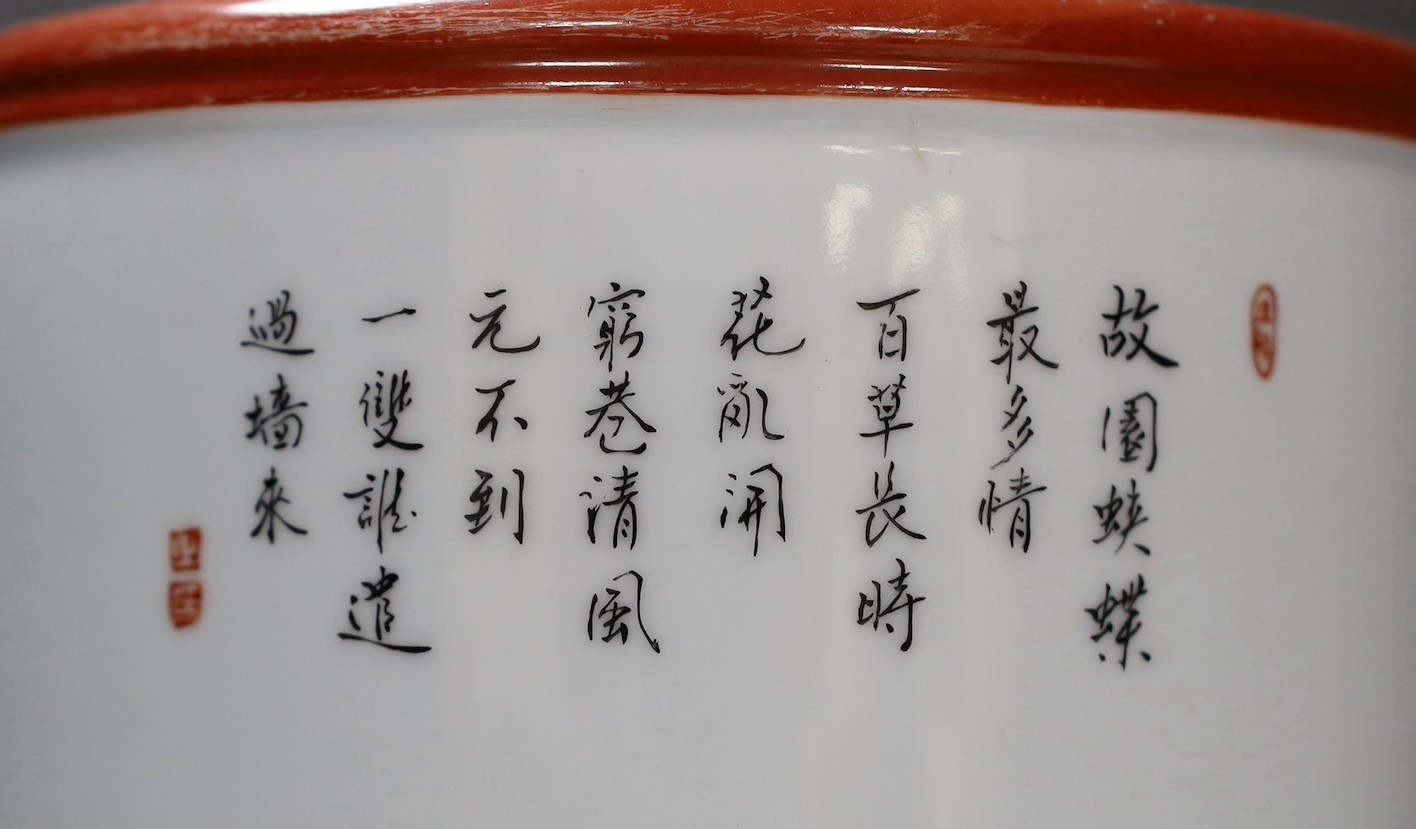 故園蛺蝶
最多情
百草長時
花亂開
窮巷清風
元不到
一雙誰遣
過墻來